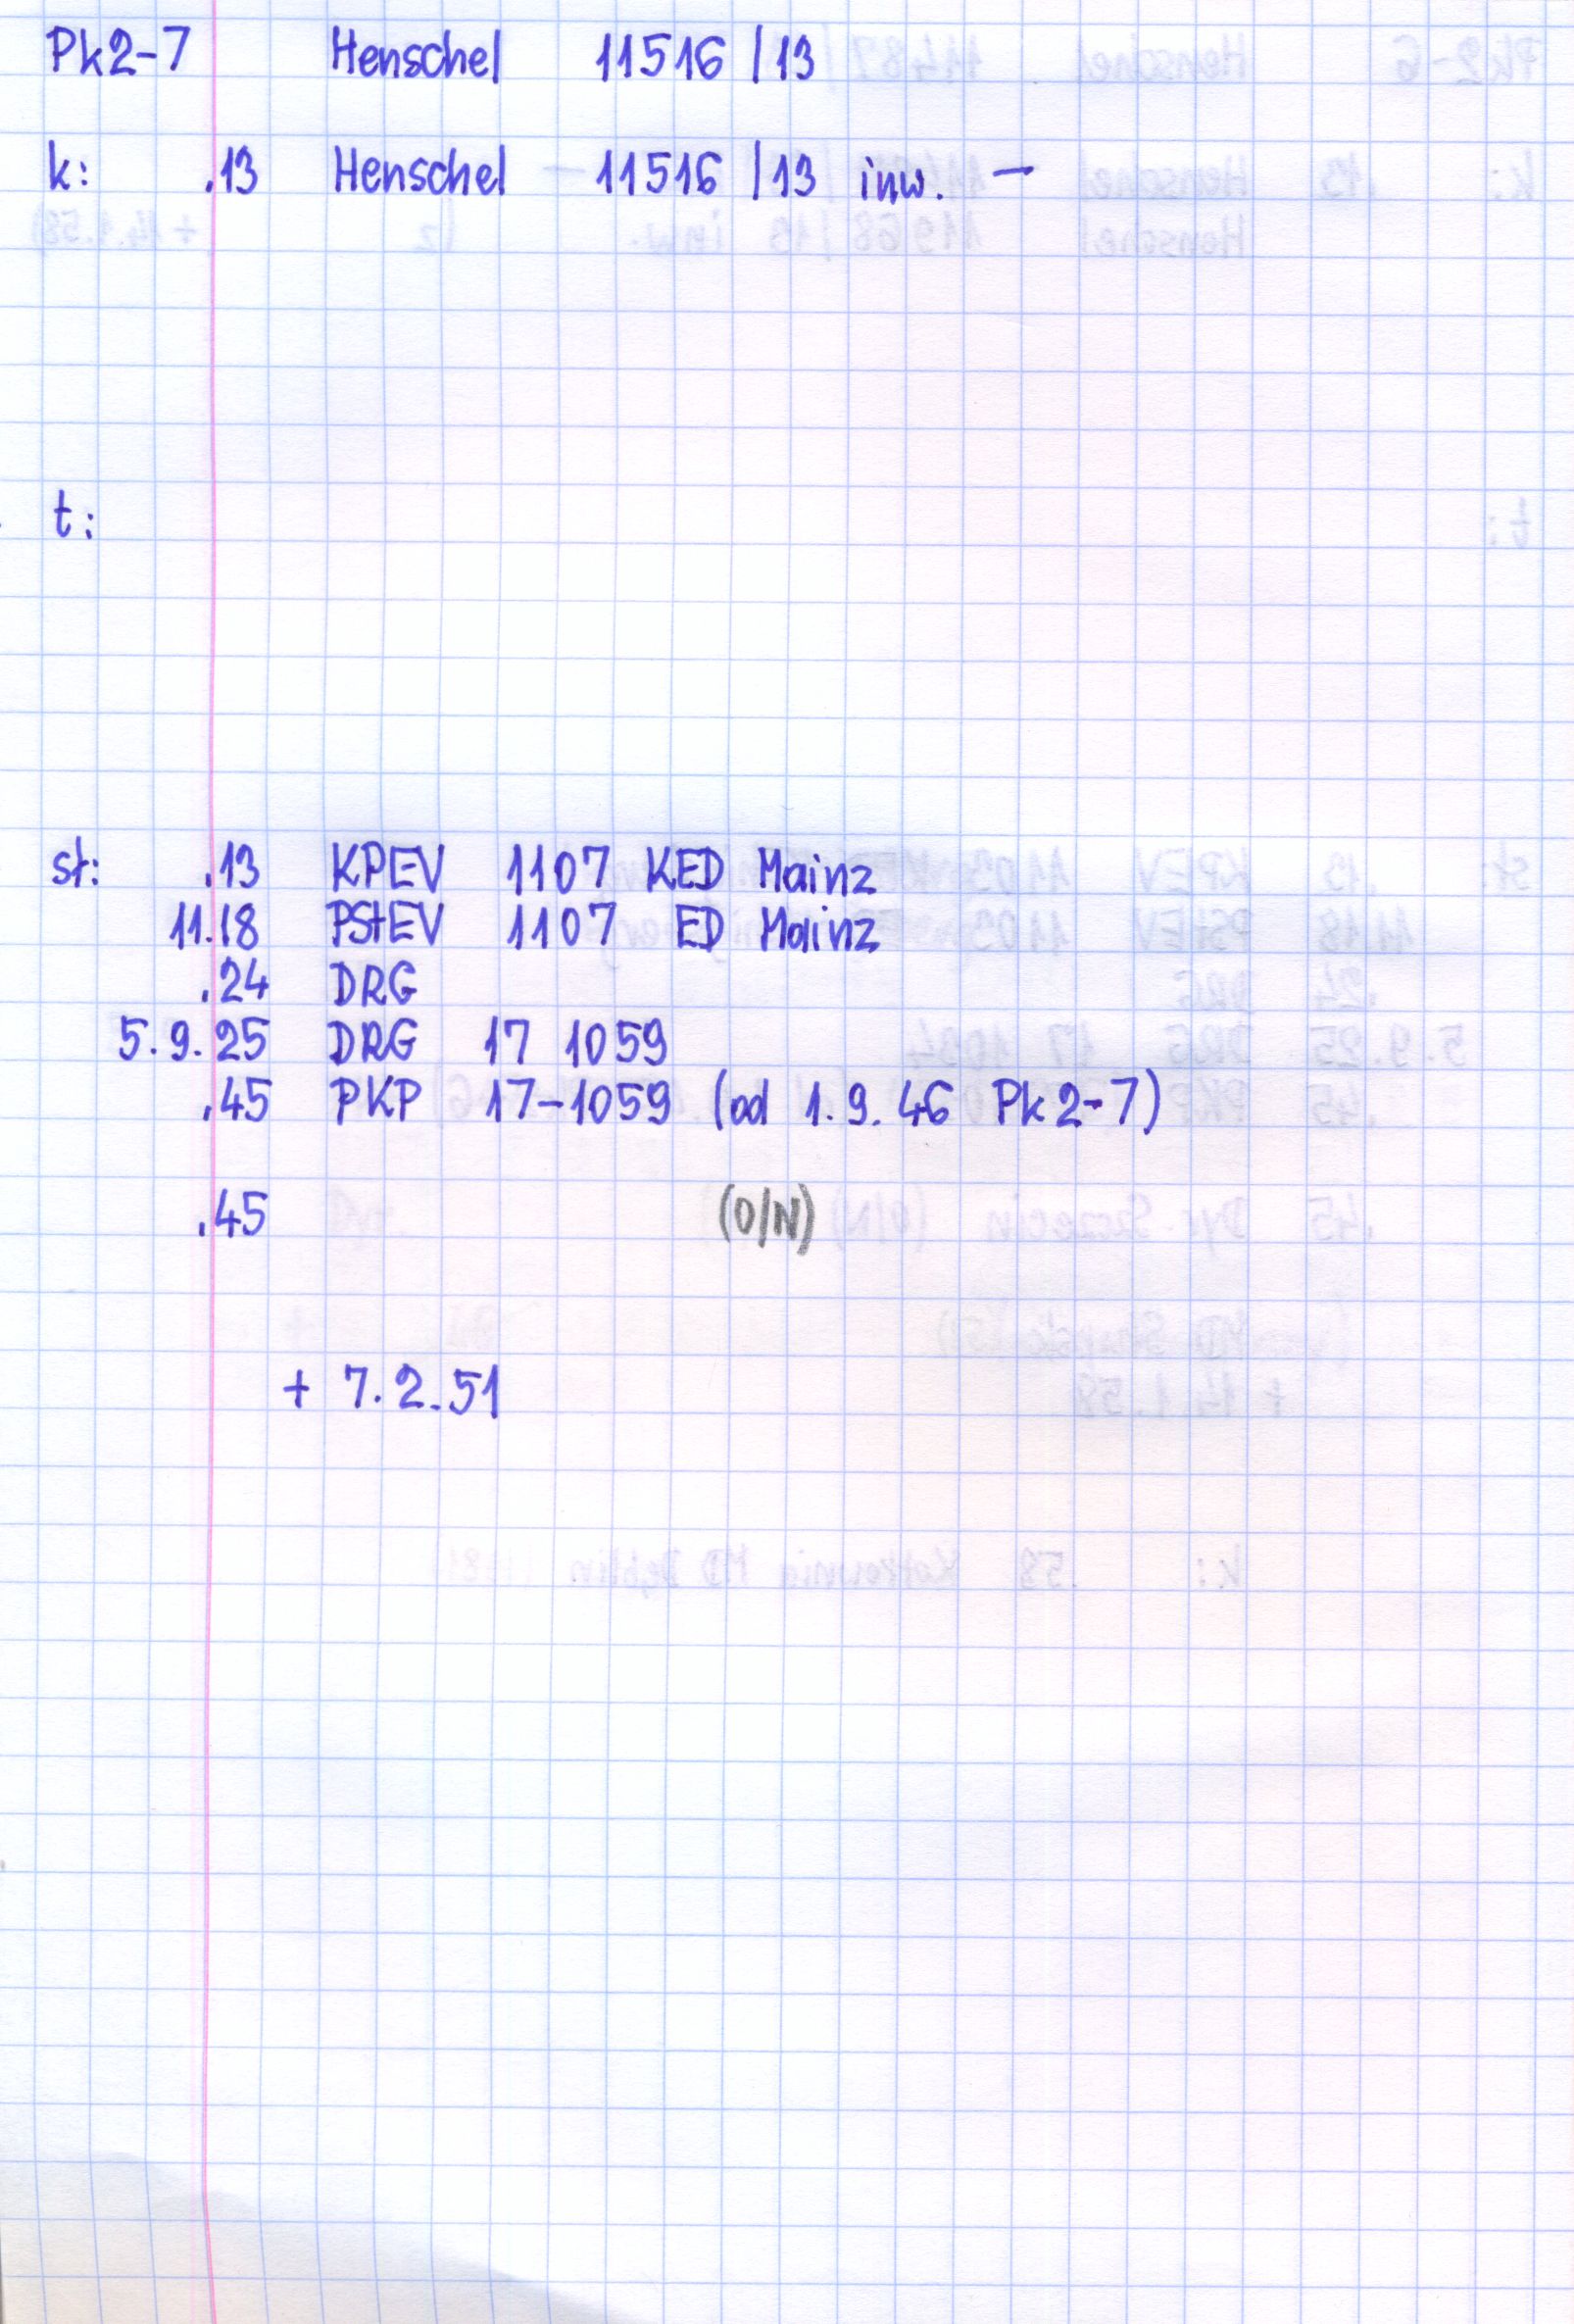 Pk2-7 Henschel 11516 / 13
k: .13 Henschel - 11516 / 13 inw. -
t:
st: .13 KPEV 1107 KED Mainz
11.18 PStEV 1107 ED Mainz
.24 DRG
5.9.25 DRG 17 1059
.45 PKP 17-1059 (od 1.9.46 Pk2-7)
.45 (O/N)
+ 7.2.51